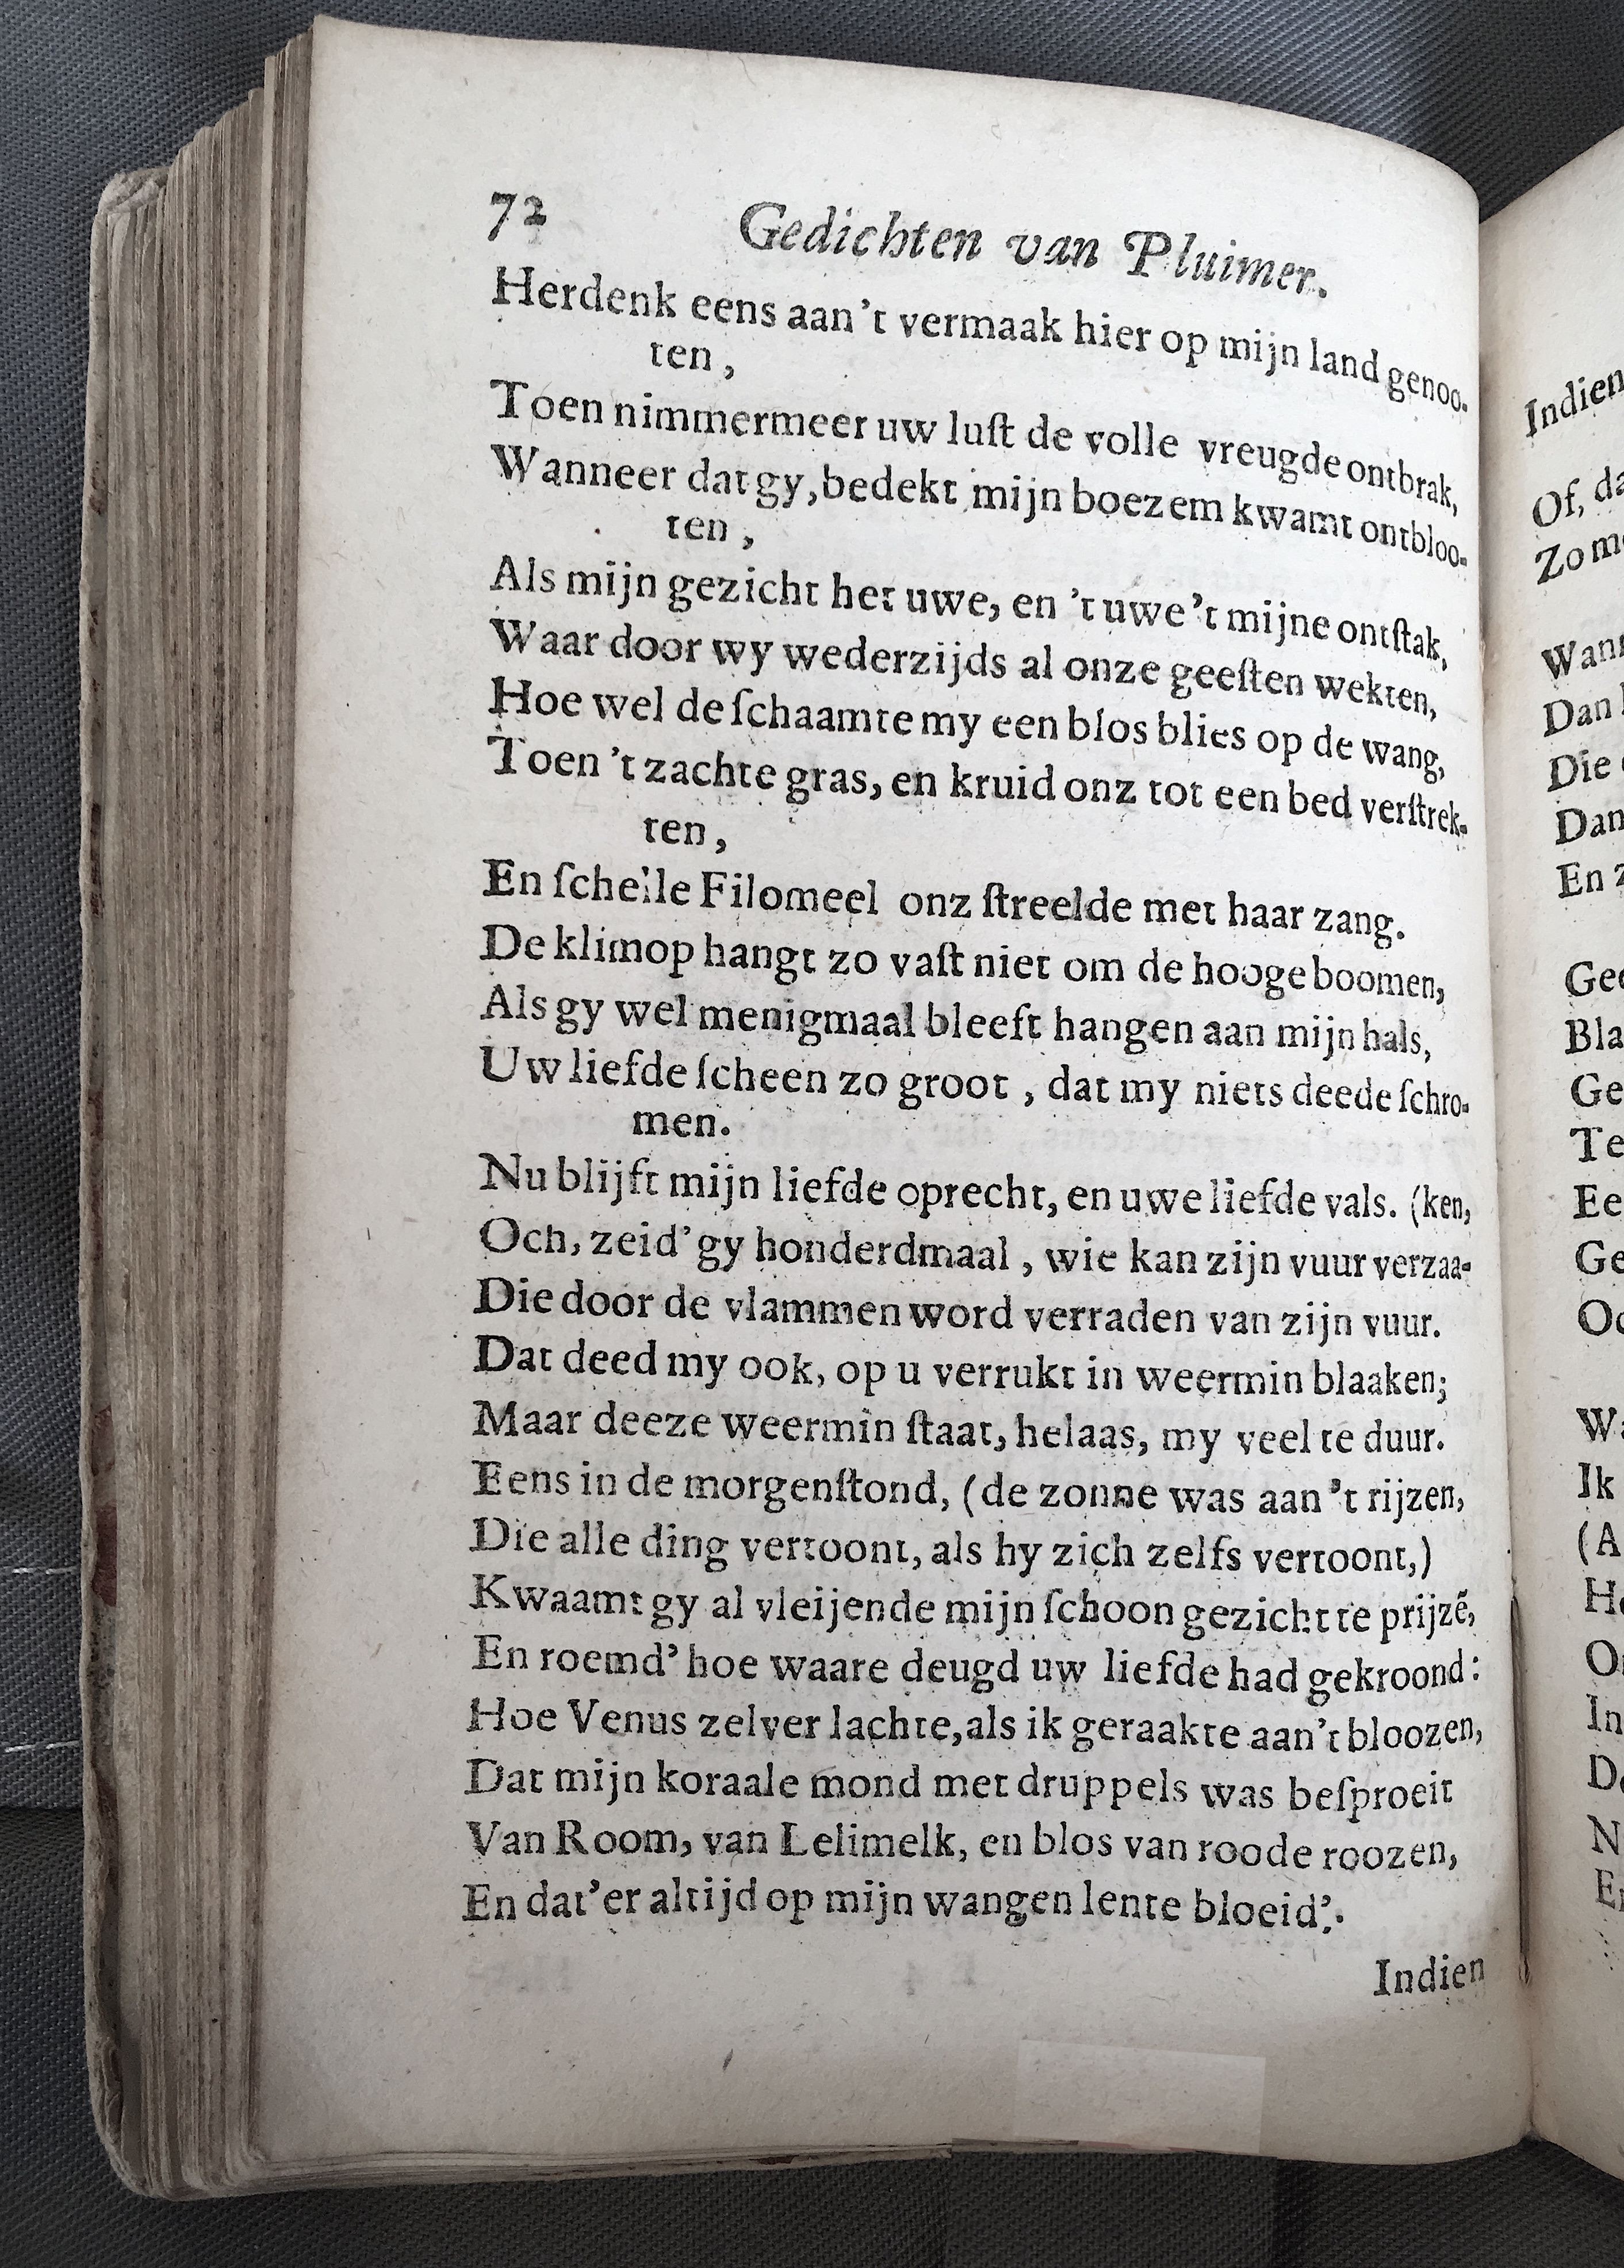 72 Gedichten van Pluimer.
Herdenk eens aan 't vermaak hier op mijn land genoo-
ten,
Toen nimmermeer uw luſt de volle vreugde ontbrak,
Wanneer dat gy, bedekt mijn boezem kwamt ontbloo-
ten,
Als mijn gezicht het uwe, en 't uwe 't mijne ontſtak,
Waar door wy wederzijds al onze geeſten wekten,
Hoe wel de ſchaamte my een blos blies op de wang,
Toen 't zachte gras, en kruid onz tot een bed verſtrek-
ten,
En ſchelle Filomeel onz ſtreelde met haar zang.
De klimop hangt zo vaſt niet om de hooge boomen,
Als gy wel menigmaal bleeft hangen aan mijn hals,
Uw liefde ſcheen zo groot, dat my niets deede ſchro-
men.
Nu blijft mijn liefde oprecht, en uwe liefde vals. (ken,
Och, zeid' gy honderdmaal, wie kan zijn vuur verzaa-
Die door de vlammen word verraden van zijn vuur.
Dat deed my ook, op u verrukt in weermin blaaken;
Maar deeze weermin ſtaat, helaas, my veel te duur.
Eens in de morgenſtond, (de zonne was aan 't rijzen,
Die alle ding vertoont, als hy zich zelfs vertoont,)
Kwaamt gy al vleijende mijn ſchoon gezicht te prijzẽ,
En roemd' hoe waare deugd uw liefde had gekroond:
Hoe Venus zelver lachte, als ik geraakte aan 't bloozen,
Dat mijn koraale mond met druppels was beſproeit
Van Room, van Lelimelk, en blos van roode roozen,
En dat'er altijd op mijn wangen lente bloeid'.
Indien
Indien
Of, da
Zo m
Wann
Dan
Die
Dan
En
Gee
Bla
Ge
Te
Ee
Ge
Oc
Wa
Ik
(A
He
In